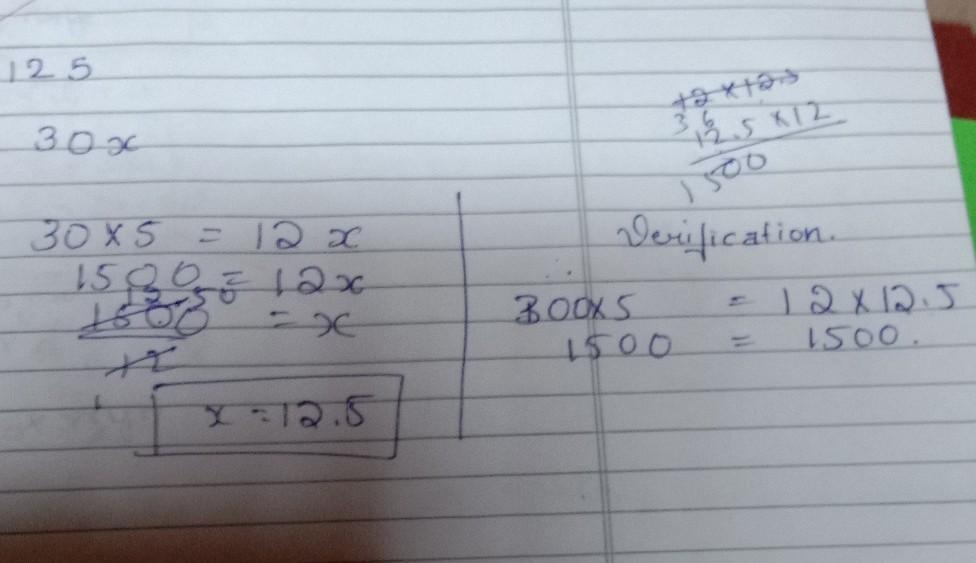 125
30x
30×5 = 12x
1500 = 12x
1500 = x
12
x = 12.5
12×12.5
36
12.5 ×12
1500
Verification.
300×5 = 12×12.5
1500 = 1500.